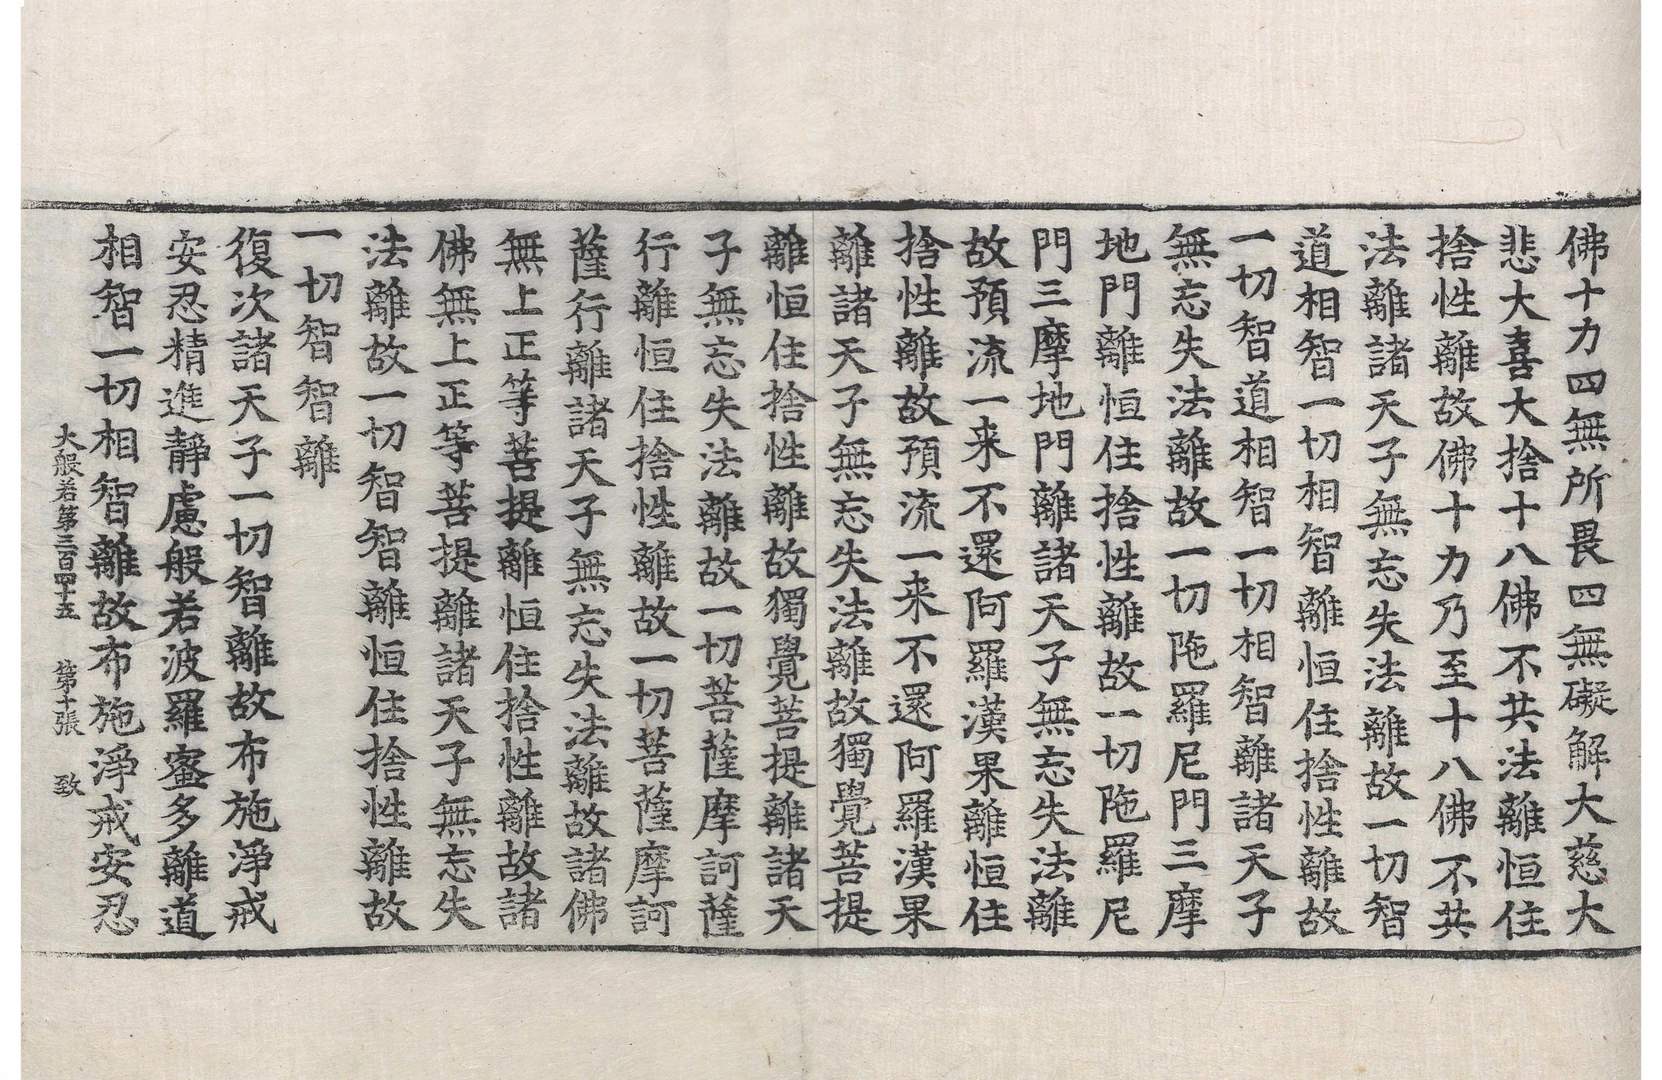 佛十力四無所畏四無礙解大慈大
悲大喜大捨十八佛不共法離恒住
捨性離故佛十力乃至十八佛不共
法離諸天子無忘失法離故一切智
道相智一切相智離恒住捨性離故
一切智道相智一切相智離諸天子
無忘失法離故一切陁羅尼門三摩
地門離恒住捨性離故一切陁羅尼
門三摩地門離諸天子無忘失法離
故預流一来不還阿羅漢果離恒住
捨性離故預流一来不還阿羅漢果
離諸天子無忘失法離故獨覺菩提
離恒住捨性離故獨覺菩提離諸天
子無忘失法離故一切菩薩摩訶薩
行離恒住捨性離故一切菩薩摩訶
薩行離諸天子無忘失法離故諸佛
無上正等菩提離恒住捨性離故諸
佛無上正等菩提離諸天子無忘失
法離故一切智智離恒住捨性離故
一切智智離
復次諸天子一切智離故布施淨戒
安忍精進靜慮般若波羅蜜多離道
相智一切相智離故布施淨戒安忍
大般若第三百四十五 第十張 致